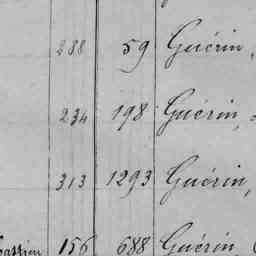 288 59 Guérin,
234 198 Guérin,
313 1293 Guérin,
156 688 Guérin